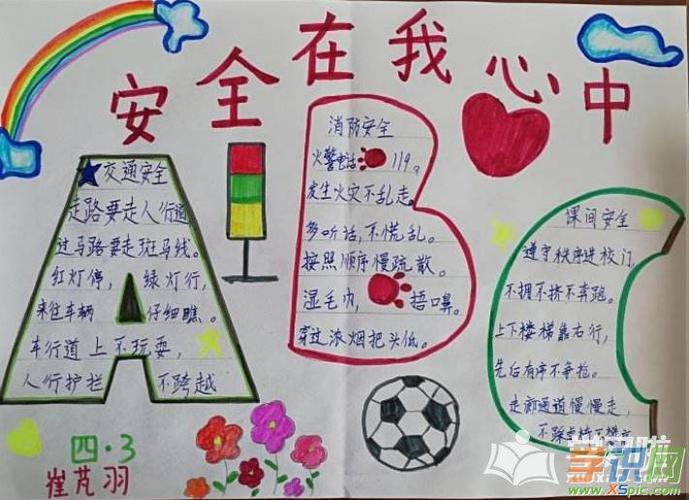 安全在我心中
交通安全
走路要走人行道
过马路要走斑马线。
红灯停，绿灯行，
来往车辆仔细瞧。
车行道上不玩耍，
人行护栏不跨越
消防安全
火警电话119。
发生火灾不乱走。
多听话，不慌乱。
按照顺序慢疏散。
湿毛巾，捂嘴鼻。
穿过浓烟把头低。
课间安全
遵守秩序进校门，
不拥不挤不奔跑。
上下楼梯靠右行，
先后有序不争抢。
走廊通道慢慢走，
四·3
崔芃羽
学识网
XSpic.com